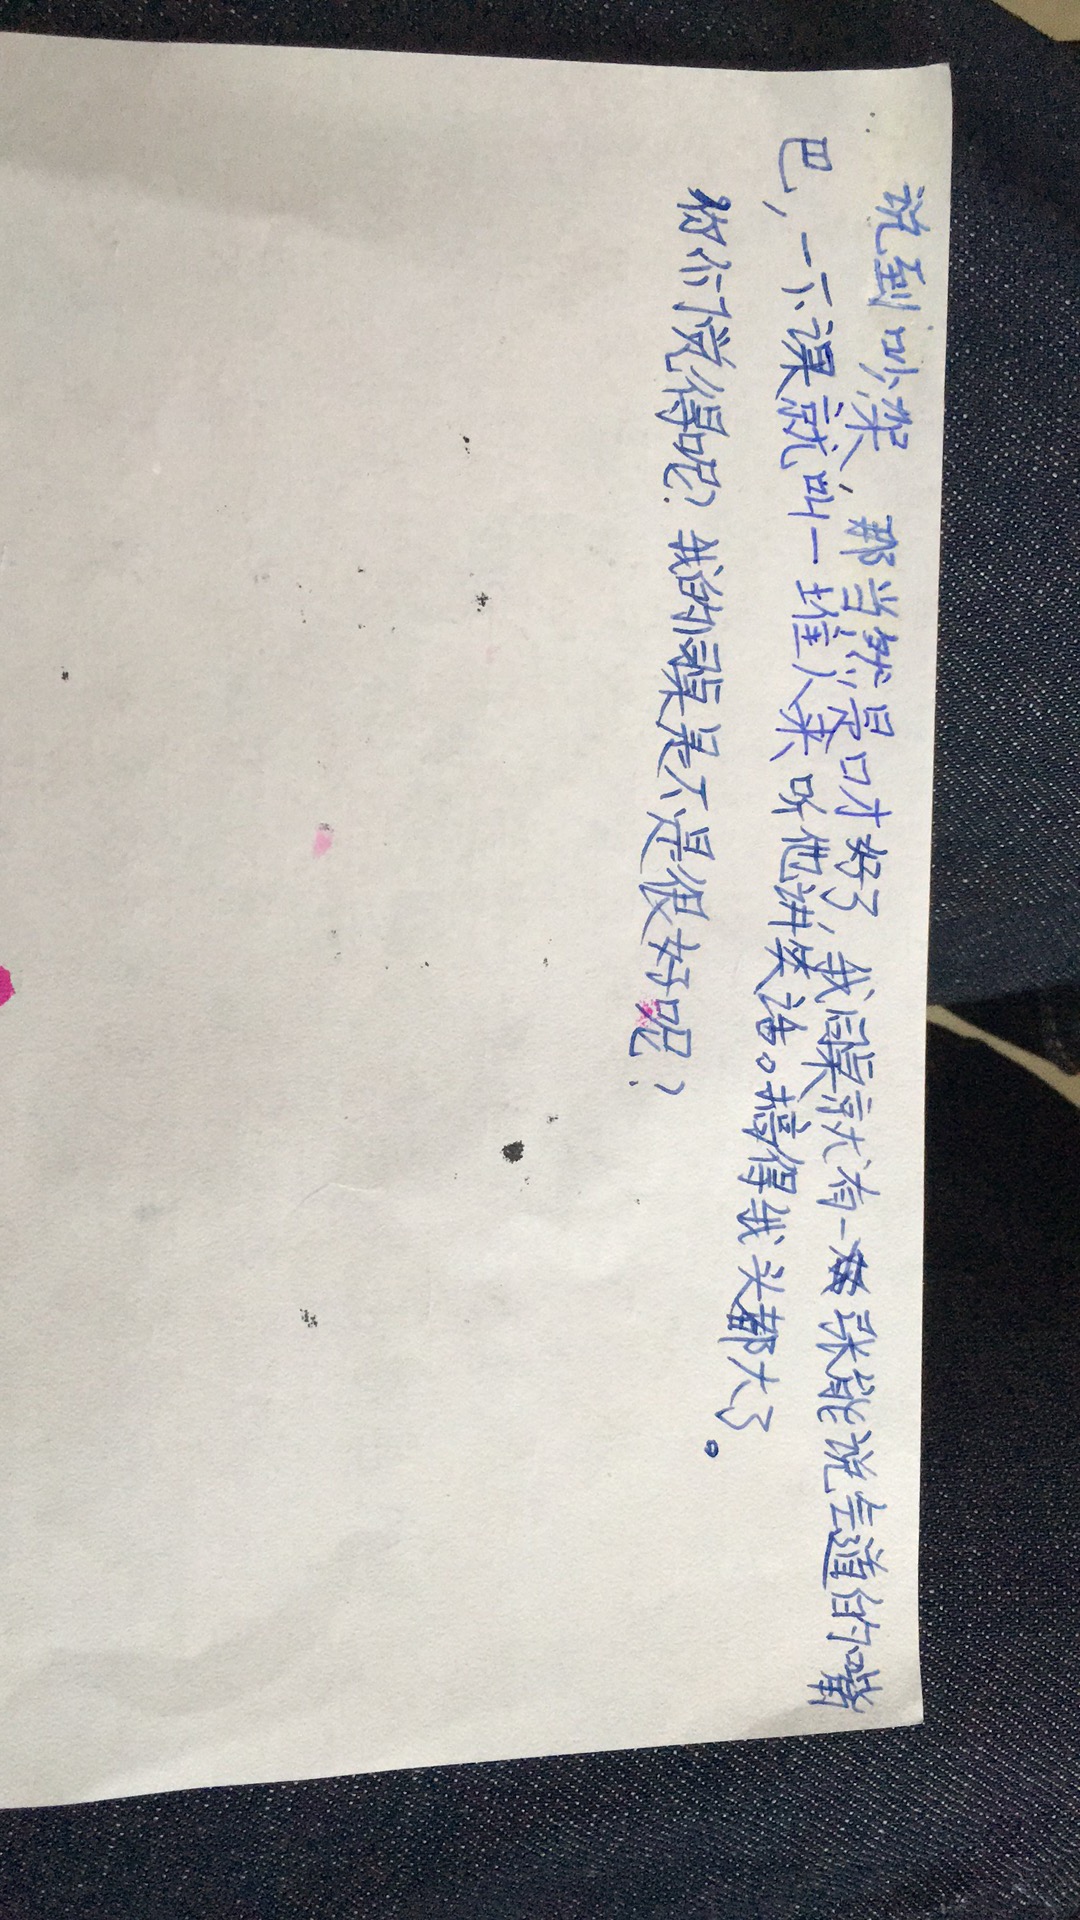 说到吵架，那当然是口才好了，我同桌就有一张能说会道的嘴
巴，一下课就叫一堆人来听他讲笑话。搞得我头都大了。
你们觉得呢？我的同桌是不是很好呢？